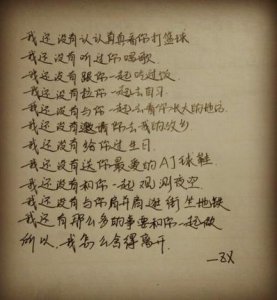 我还没有认认真真看你打篮球
我还没有听过你唱歌
我还没有跟你一起吃过饭
我还没有拉你一起去自习
我还没有与你一起去看你长大的地方
我还没有邀请你去我的故乡
我还没有给你过生日
我还没有送你最爱的AJ球鞋
我还没有和你一起观测夜空
我还没有与你肩并肩逛街坐地铁
我还有那么多的事要和你一起做
所以,我怎么舍得离开.
—ZX